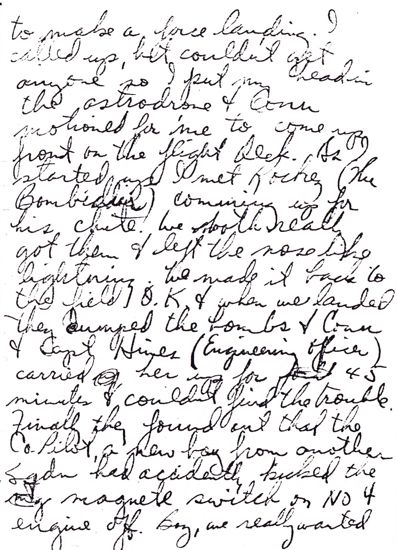 to make a force landing. I
called up, but couldn't get
anyone so I put my head in
the astrodrone & Conn
motioned for me to come up
front on the flight deck. As I
started up I met Rocky (The
Bombidier) comming up for
his chute. We both really
got them & left the nose like
lightning. We made it back to
the field O.K. & when we landed
They dumped the bombs & Conn
& Capt. Hines (Engineering Officer)
carried her up for 45
minutes & couldn't find the trouble.
Finally they found out that the
Co. Pilot, a new boy from another
Sqdn had accidently kicked the
magnete switch on NO 4
engine off. Boy, we really wanted